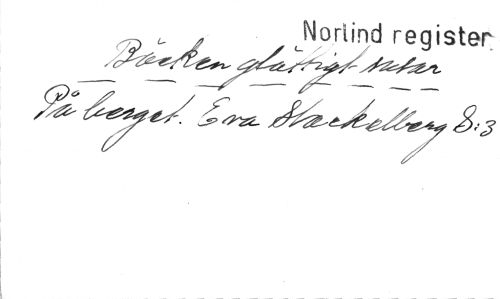 Norlind register.
Bäcken glättigt rusar
På berget. Eva Stackelberg S:3